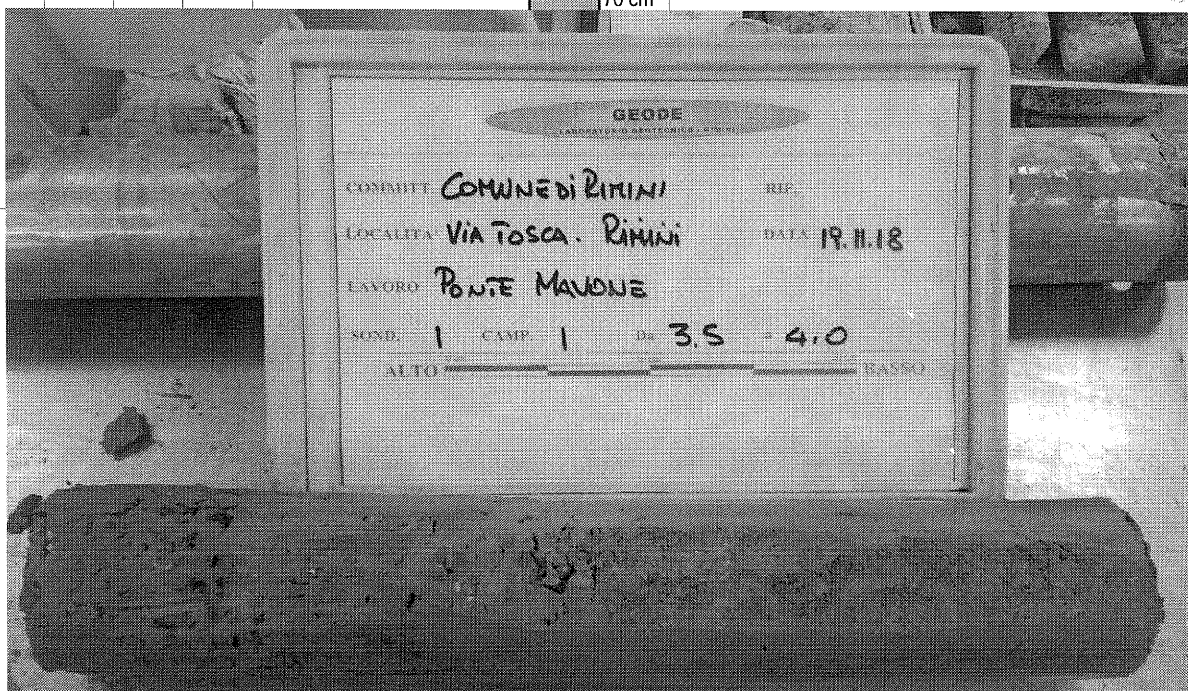 70 cm
GEODE
LABORATORIO GEOTECNICO - RIMINI
COMMITT. COMUNE DI RIMINI RIF.
LOCALITA' VIA TOSCA. RIMINI DATA 19.11.18
LAVORO PONTE MAVONE
SOND. 1 CAMP. 1 Da 3.5 a 4.0
ALTO BASSO